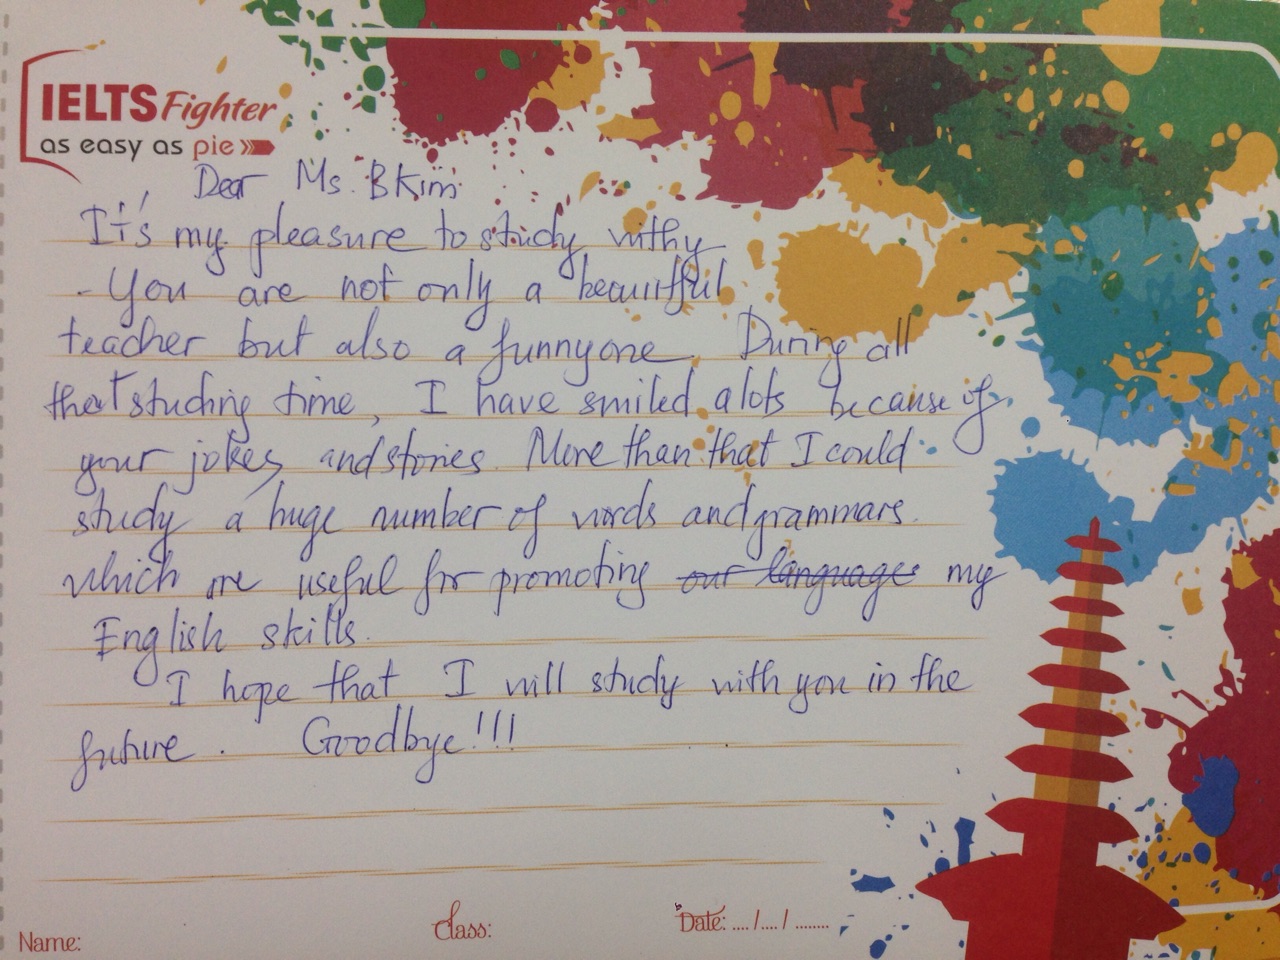 IELTS Fighter
as easy as pie
Dear Ms. BKim
It's my pleasure to study withy
- You are not only a beauitful
teacher but also a funny one. During all
that studing time, I have smiled a lots because of
your jokes and stories. More than that I could
study a huge number of words and grammars.
which are useful for promoting our language my
English skills.
I hope that I will study with you in the
future. Goodbye!!!
Name:
Class:
Date: ..../..../........